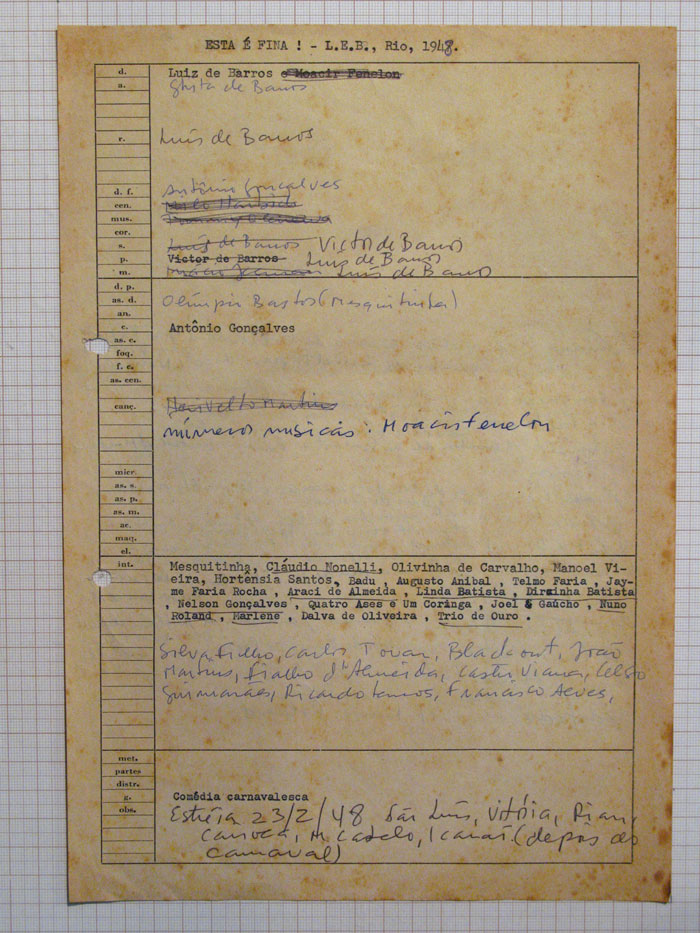 ESTA É FINA ! - L.E.B., Rio, 1948.
d. Luiz de Barros e Moacir Fenelon
a. Ghita de Barros
r. Luís de Barros
d. f. Antônio Gonçalves
cen.
mus.
cor.
s. Luís de Barros Victor de Barros
p. Victor de Barros Luis de Barros
m. Luís de Barros
d. p.
as. d. Olímpio Bastos (Mesquitinha)
an.
c. Antônio Gonçalves
as. c.
foq.
f. c.
as. cen.
canç. Martins
números musicais: Moacir Fenelon
micr.
as. s.
as. p.
as. m.
ac.
maq.
el.
int. Mesquitinha, Cláudio Nonelli, Olivinha de Carvalho, Manoel Vi-
eira, Hortênsia Santos, Badu , Augusto Anibal , Telmo Faria , Jay-
me Faria Rocha , Araci de Almeida , Linda Batista , Dircinha Batista
, Nelson Gonçalves , Quatro Ases e Um Coringa , Joel & Gaúcho , Nuno
Roland , Marlene , Dalva de Oliveira , Trio de Ouro .
Silva Filho, Carlos Tovar, Blackout, João
Martins, Fialho d'Almeida, Castro Viana, Celso
Guimarães, Ricardo Lemos, Francisco Alves,
met.
partes
distr.
g. Comédia carnavalesca
obs. Estréia 23/2/48 São Luís, Vitória, Rian,
Carioca, M. Castelo, Icaraí (depois do
carnaval)